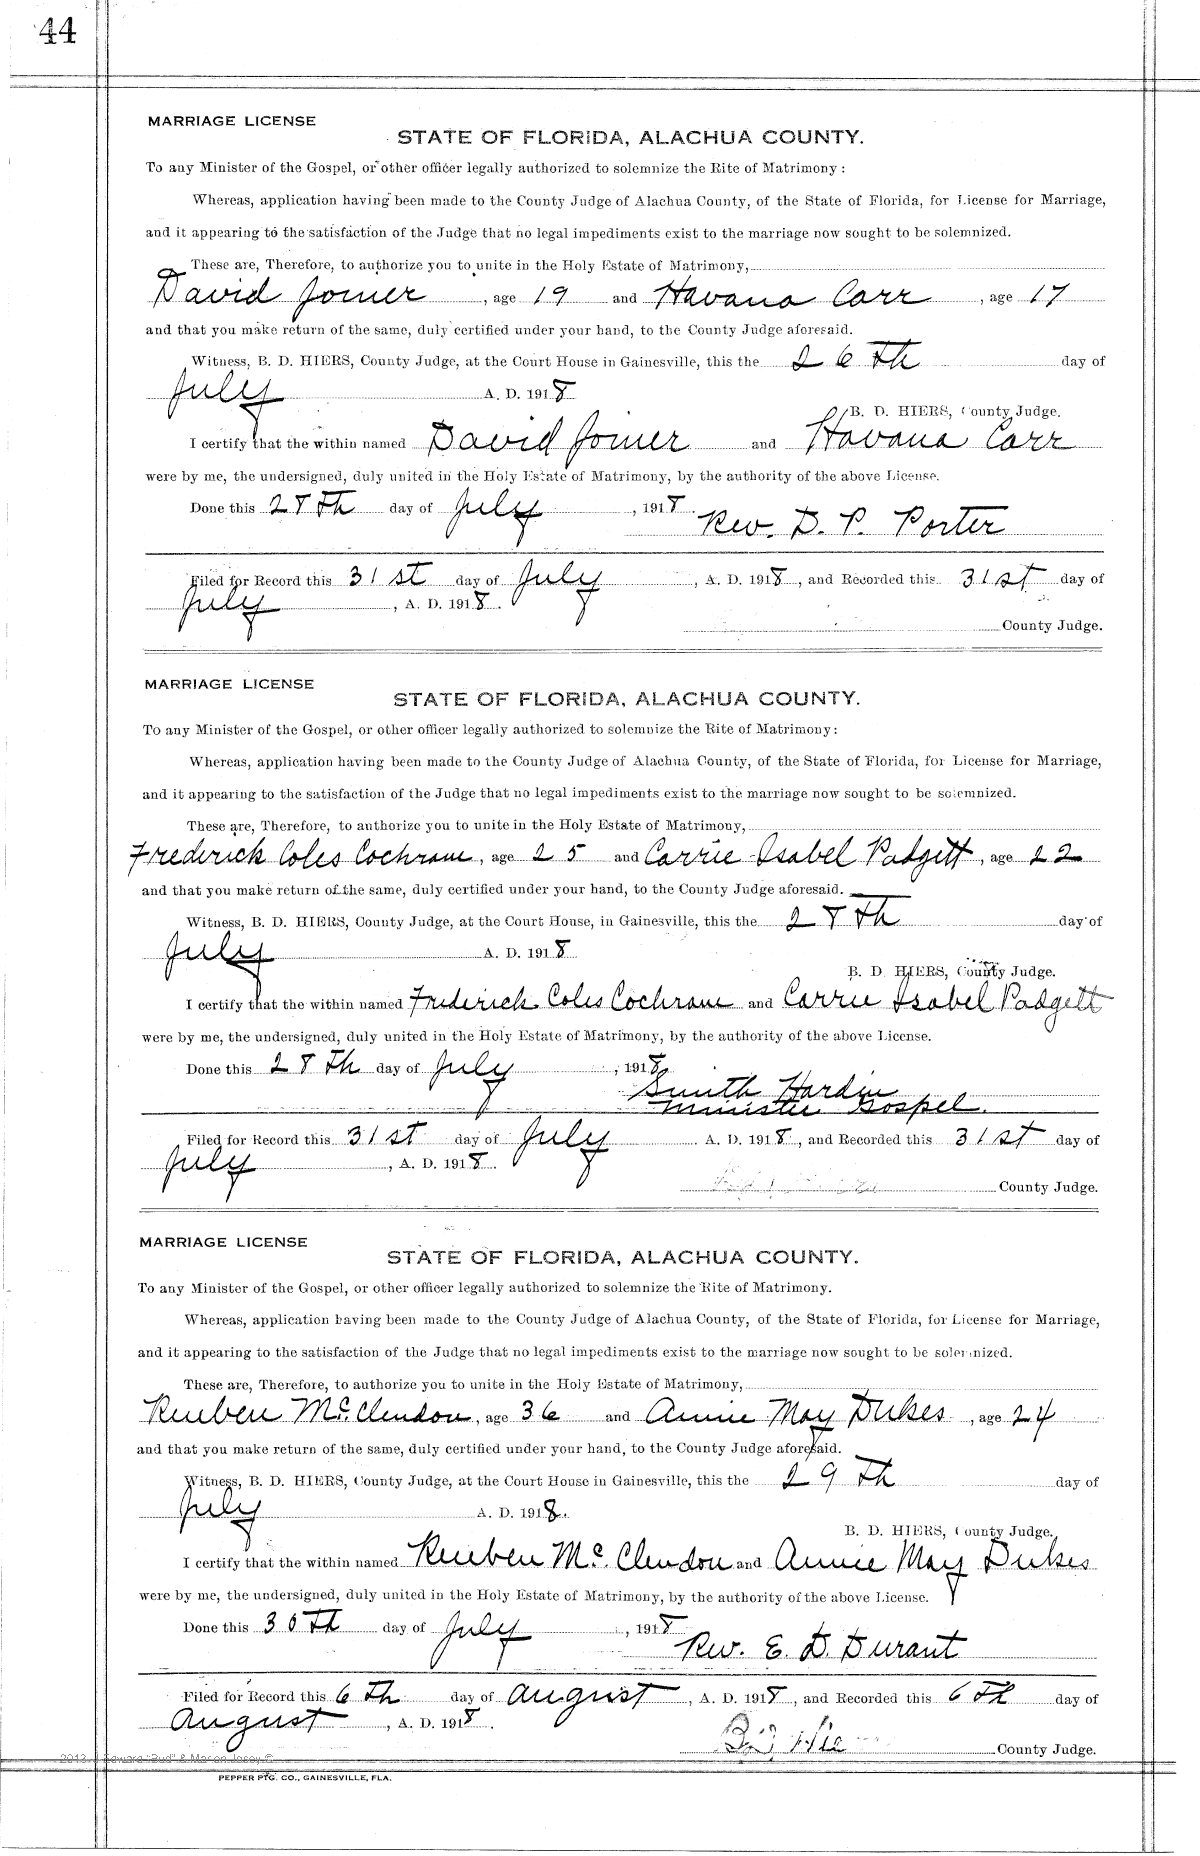 44
MARRIAGE LICENSE
STATE OF FLORIDA, ALACHUA COUNTY.
To any Minister of the Gospel, or other officer legally authorized to solemnize the Rite of Matrimony:
Whereas, application having been made to the County Judge of Alachua County, of the State of Florida, for License for Marriage,
and it appearing to the satisfaction of the Judge that no legal impediments exist to the marriage now sought to be solemnized.
These are, Therefore, to authorize you to unite in the Holy Estate of Matrimony,
David Joiner, age 19 and Havana Carr, age 17
and that you make return of the same, duly certified under your hand, to the County Judge aforesaid.
Witness, B. D. HIERS, County Judge, at the Court House in Gainesville, this the 26th day of
July A. D. 1918
B. D. HIERS, County Judge.
I certify that the within named David Joiner and Havana Carr
were by me, the undersigned, duly united in the Holy Estate of Matrimony, by the authority of the above License.
Done this 28th day of July, 1918.
Rev. D. P. Porter
Filed for Record this 31st day of July, A. D. 1918, and Recorded this 31st day of
July, A. D. 1918.
County Judge.
MARRIAGE LICENSE
STATE OF FLORIDA, ALACHUA COUNTY.
To any Minister of the Gospel, or other officer legally authorized to solemnize the Rite of Matrimony:
Whereas, application having been made to the County Judge of Alachua County, of the State of Florida, for License for Marriage,
and it appearing to the satisfaction of the Judge that no legal impediments exist to the marriage now sought to be solemnized.
These are, Therefore, to authorize you to unite in the Holy Estate of Matrimony,
Frederick Coles Cochrane, age 25 and Carrie Isabel Padgett, age 22
and that you make return of the same, duly certified under your hand, to the County Judge aforesaid.
Witness, B. D. HIERS, County Judge, at the Court House, in Gainesville, this the 28th day of
July A. D. 1918
B. D. HIERS, County Judge.
I certify that the within named Frederick Coles Cochrane and Carrie Isabel Padgett
were by me, the undersigned, duly united in the Holy Estate of Matrimony, by the authority of the above License.
Done this 28th day of July, 1918.
Smith Hardin
Minister Gospel.
Filed for Record this 31st day of July A. D. 1918, and Recorded this 31st day of
July, A. D. 1918.
County Judge.
MARRIAGE LICENSE
STATE OF FLORIDA, ALACHUA COUNTY.
To any Minister of the Gospel, or other officer legally authorized to solemnize the Rite of Matrimony.
Whereas, application having been made to the County Judge of Alachua County, of the State of Florida, for License for Marriage,
and it appearing to the satisfaction of the Judge that no legal impediments exist to the marriage now sought to be solemnized.
These are, Therefore, to authorize you to unite in the Holy Estate of Matrimony,
Reuben McClendon, age 36 and Annie May Dukes, age 24
and that you make return of the same, duly certified under your hand, to the County Judge aforesaid.
Witness, B. D. HIERS, County Judge, at the Court House in Gainesville, this the 29th day of
July A. D. 1918.
B. D. HIERS, County Judge.
I certify that the within named Reuben McClendon and Annie May Dukes
were by me, the undersigned, duly united in the Holy Estate of Matrimony, by the authority of the above License.
Done this 30th day of July, 1918
Rev. E. D. Durant
Filed for Record this 6th day of August, A. D. 1918, and Recorded this 6th day of
August, A. D. 1918.
County Judge.
PEPPER PTG. CO., GAINESVILLE, FLA.